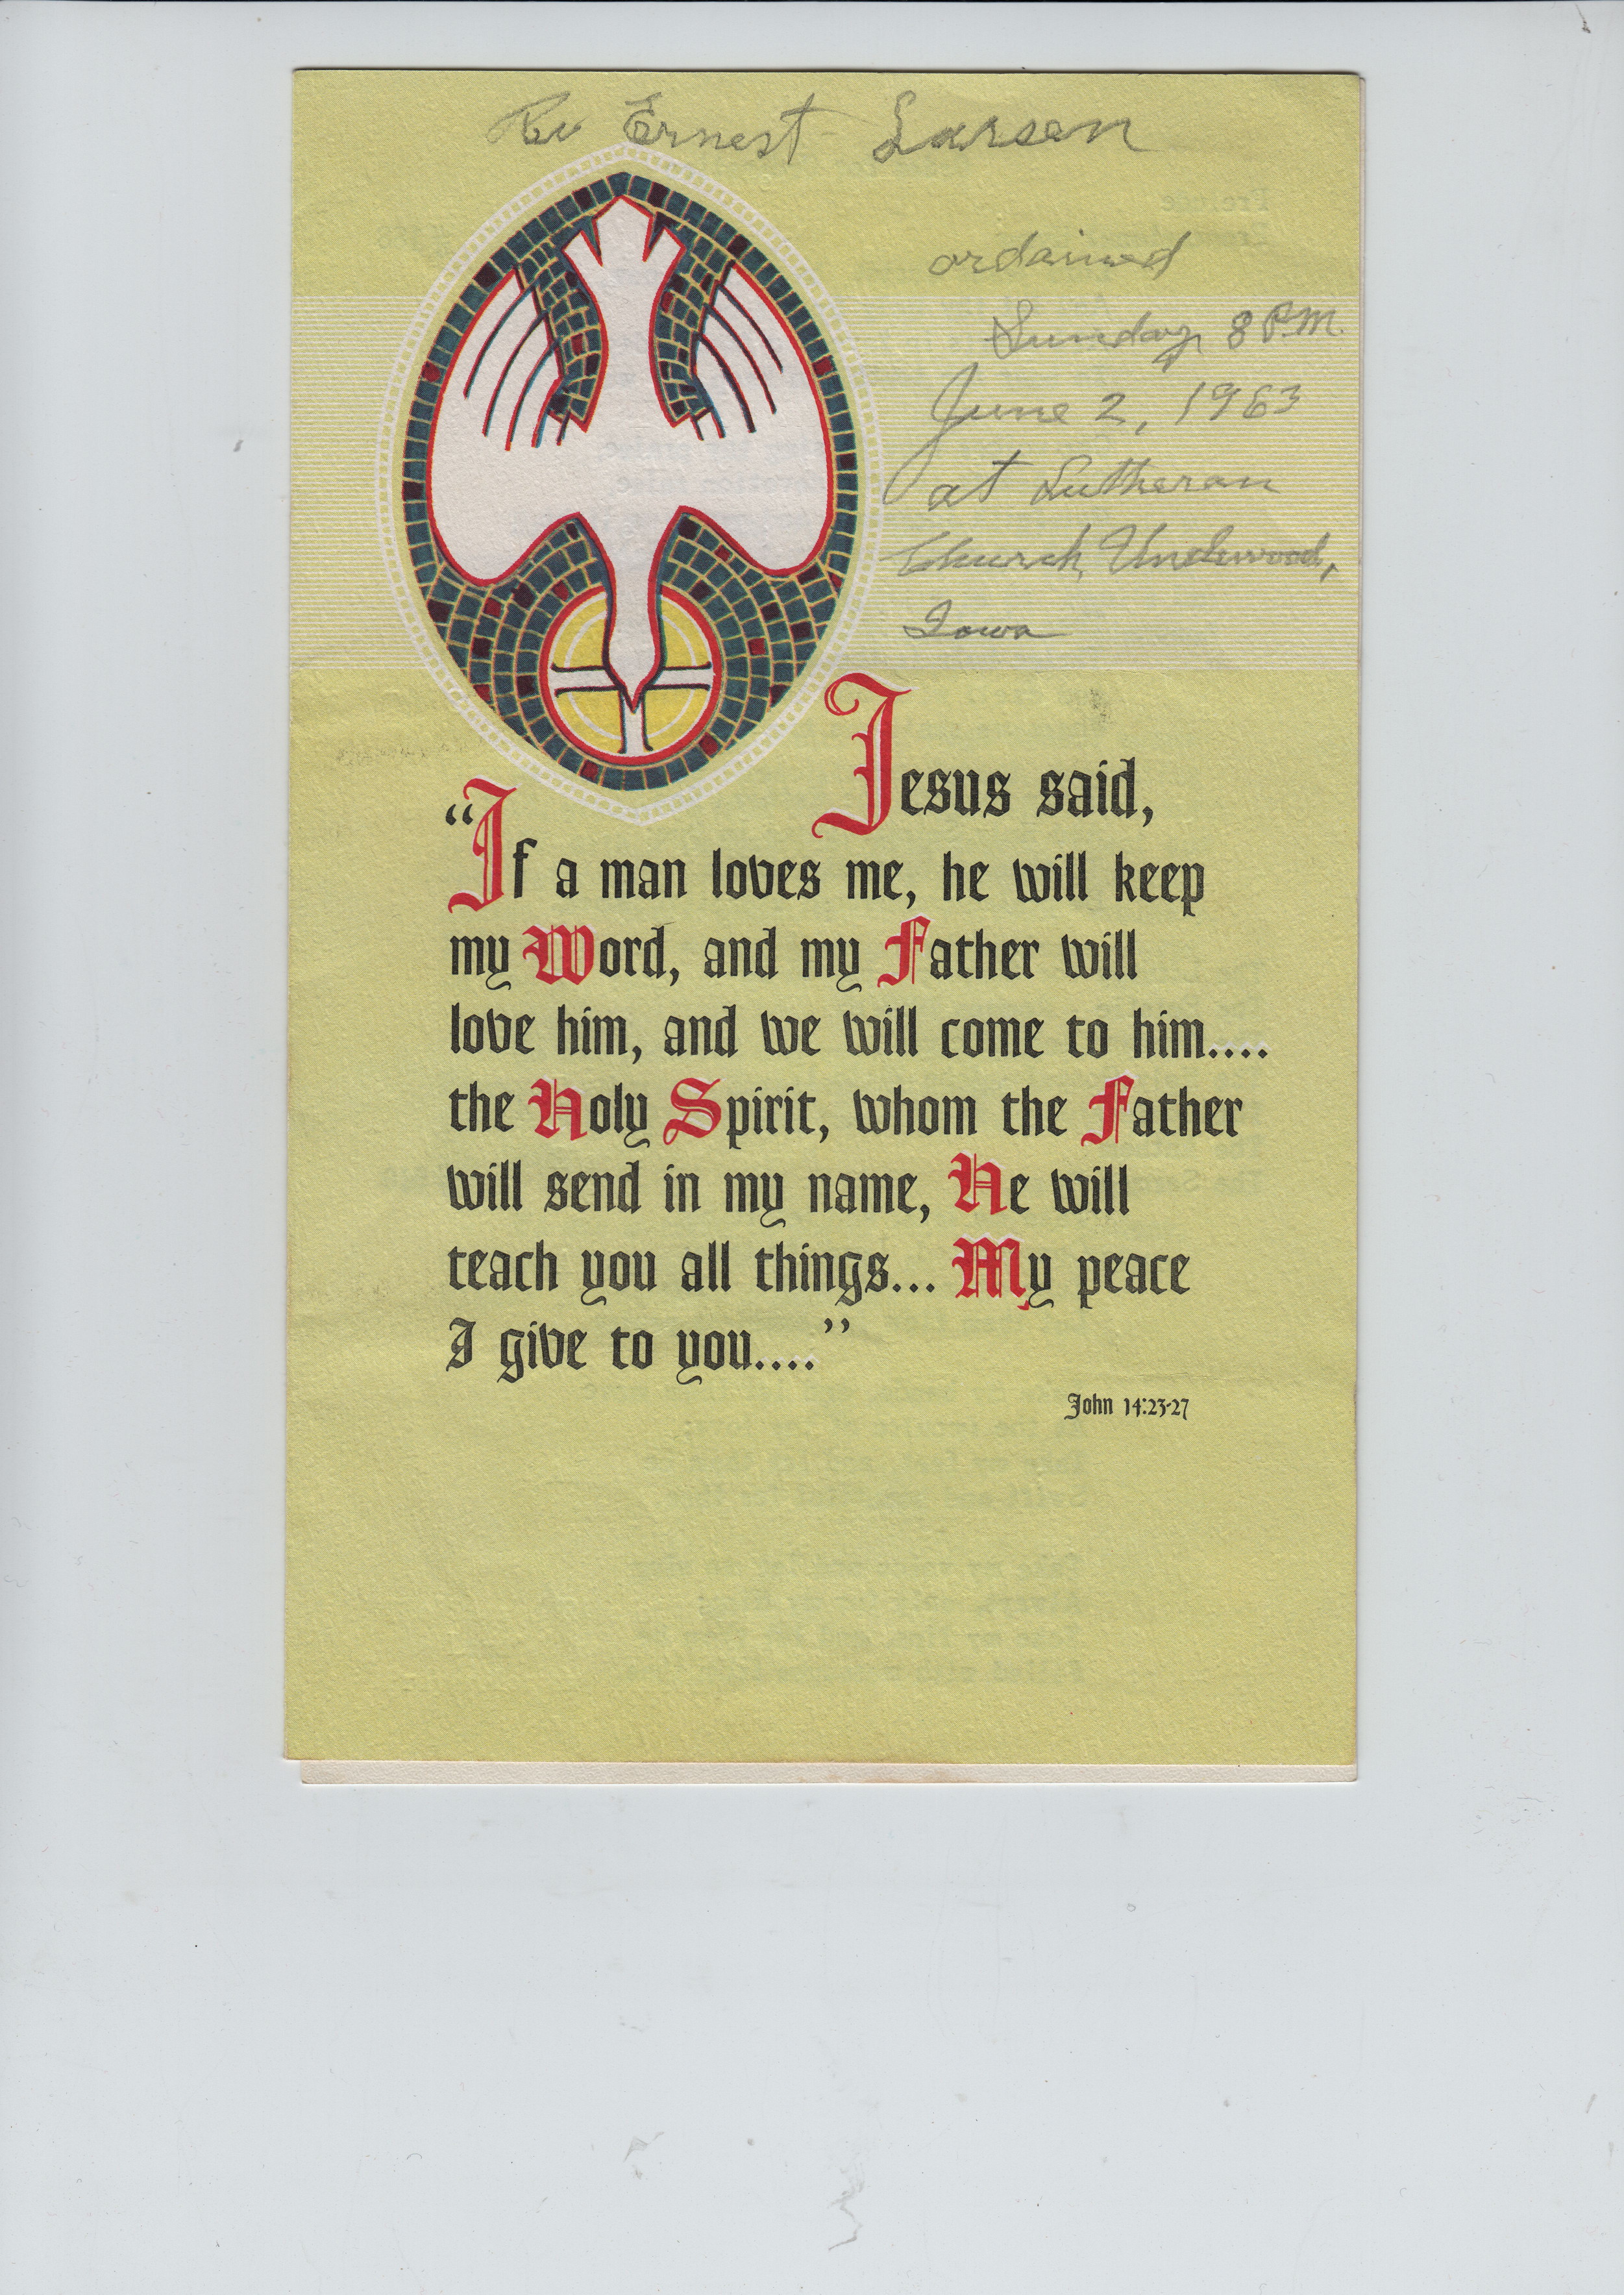 Rev Ernest Larsen
ordained
Sunday, 8 P.M.
June 2, 1963
at Lutheran
Church, Underwood,
Iowa
Jesus said,
“If a man loves me, he will keep
my Word, and my Father will
love him, and we will come to him....
the Holy Spirit, whom the Father
will send in my name, He will
teach you all things... My peace
I give to you....”
John 14:23-27